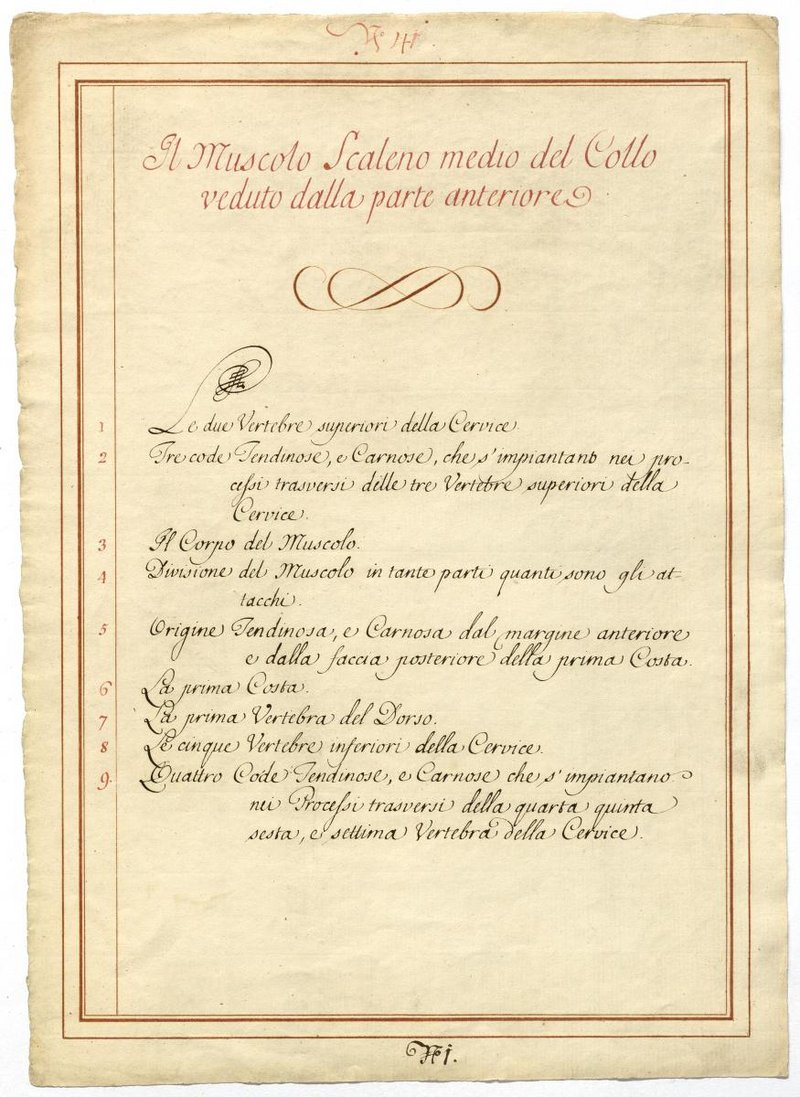 N.º 41.
Il Muscolo Scaleno medio del Collo
veduto dalla parte anteriore
1 Le due Vertebre superiori della Cervice.
2 Tre code Tendinose, e Carnose, che s'impiantano nei pro-
cessi trasversi delle tre Vertebre superiori della
Cervice.
3 Il Corpo del Muscolo.
4 Divisione del Muscolo in tante parti quanti sono gli at-
tacchi.
5 Origine Tendinosa, e Carnosa dal margine anteriore
e dalla faccia posteriore della prima Costa.
6 La prima Costa.
7 La prima Vertebra del Dorso.
8 Le cinque Vertebre inferiori della Cervice.
9. Quattro Code Tendinose, e Carnose che s'impiantano
nei Processi trasversi della quarta quinta
sesta, e settima Vertebra della Cervice.